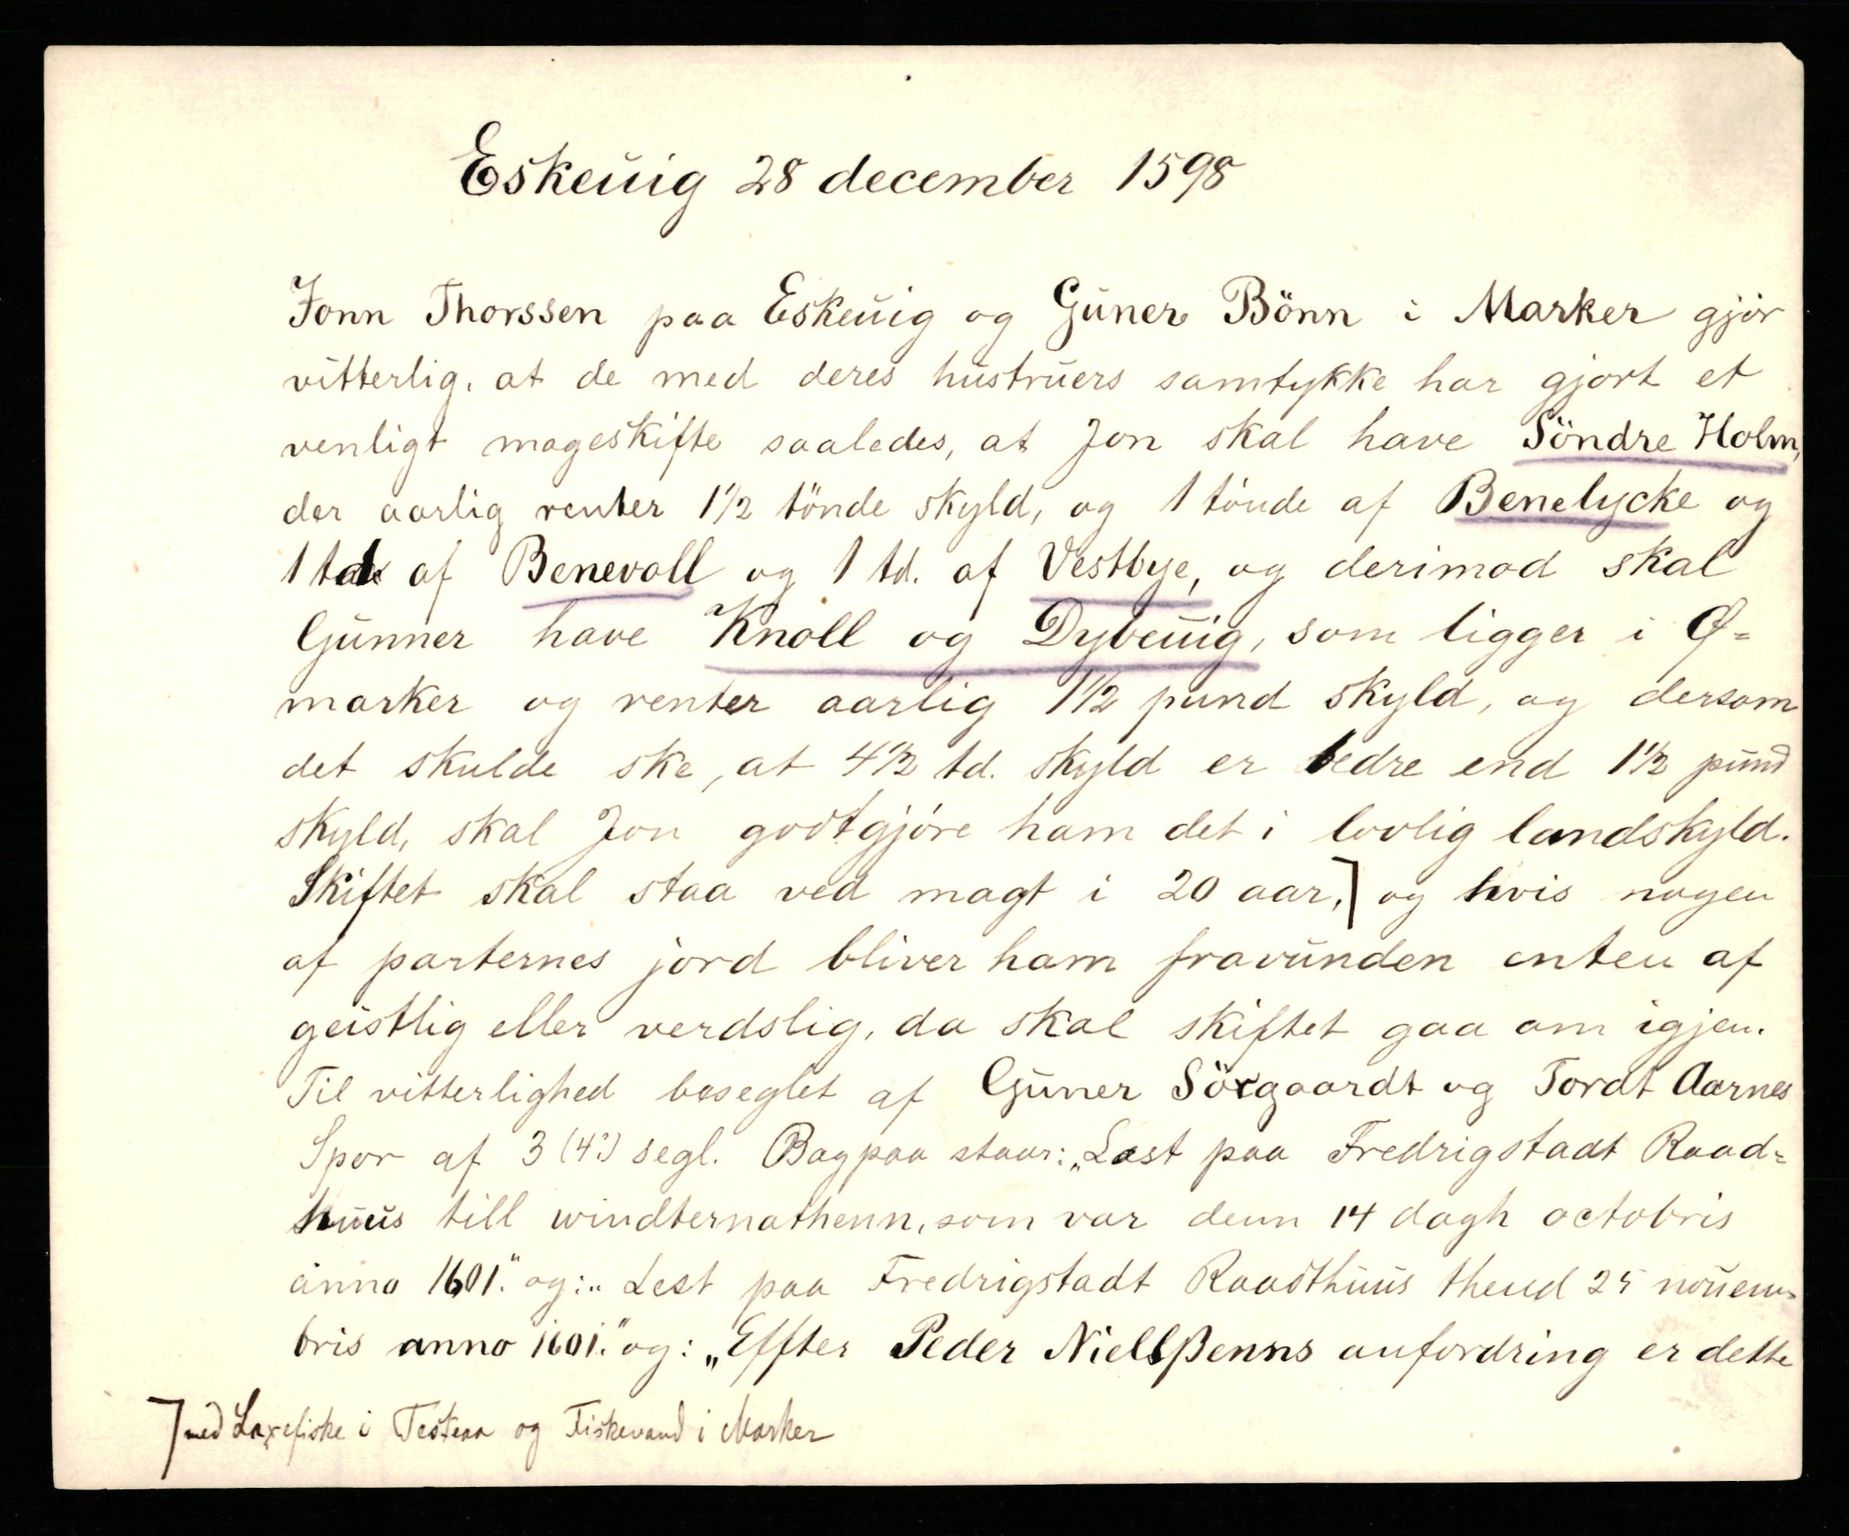 Eskeuig 28 december 1598
Jonn Thorssen paa Eskeuig og Guner Bönn i Marker gjör
vitterlig, at de med deres hustruers samtykke har gjort et
venligt mageskifte saaledes, at Jon skal have Söndre Holm,
der aarlig renter 1½ tönde skyld, og 1 tönde af Benelycke og
1 td. af Benevoll og 1 td. af Vestbye, og derimod skal
Gunner have Knoll og Dybeuig, som ligger i Ø=
marker og renter aarlig 1½ pund skyld, og dersom
det skulde ske, at 4½ td. skyld er bedre end 1½ pund
skyld, skal Jon godtgjöre ham det i lovlig landskyld.
Skiftet skal staa ved magt i 20 aar,⁊ og hvis nogen
af parternes jord bliver ham fravunden enten af
geistlig eller verdslig, da skal skiftet gaa om igjen.
Til vitterlighed beseglet af Guner Sörgaardt og Tordt Aarnes
Spor af 3 (4?) segl. Bagpaa staar: „Lest paa Fredrigstadt Raad=
huus till windternathenn, som var denn 14 dagh octobris
anno 1601." og: „Lest paa Fredrigstadt Raadthuus thend 25 nouem=
bris anno 1601." og: „Effter Peder Nielsßenns anfordring er dette
⁊ med Laxefiske i Testeaa og Fiskevand i Marker